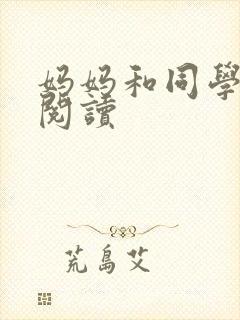 妈妈和同學
閱讀
荒島艾